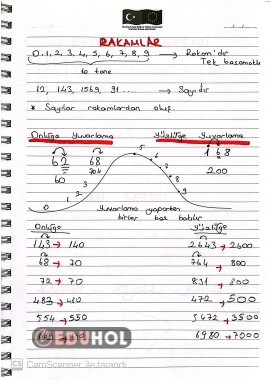 RAKAMLAR
0, 1, 2, 3, 4, 5, 6, 7, 8, 9 → Rakam'dır
Tek basamaklı
10 tane
12, 143, 1569, 91... → Sayıdır
* Sayılar rakamlardan oluşur.
Onluğa Yuvarlama
Yüzlüğe Yuvarlama
62 68
60 70
168
200
0 1 2 3 4 5 6 7 8 9
Yuvarlama yaparken
birler bas
Onluğa
Yüzlüğe
143 → 140
2643 → 2600
68 → 70
764 → 800
72 → 70
831 → 800
483 →
472 → 500
554 → 550
3472 → 3500
6980 → 7000
EDUHOL
CS CamScanner ile tarandı